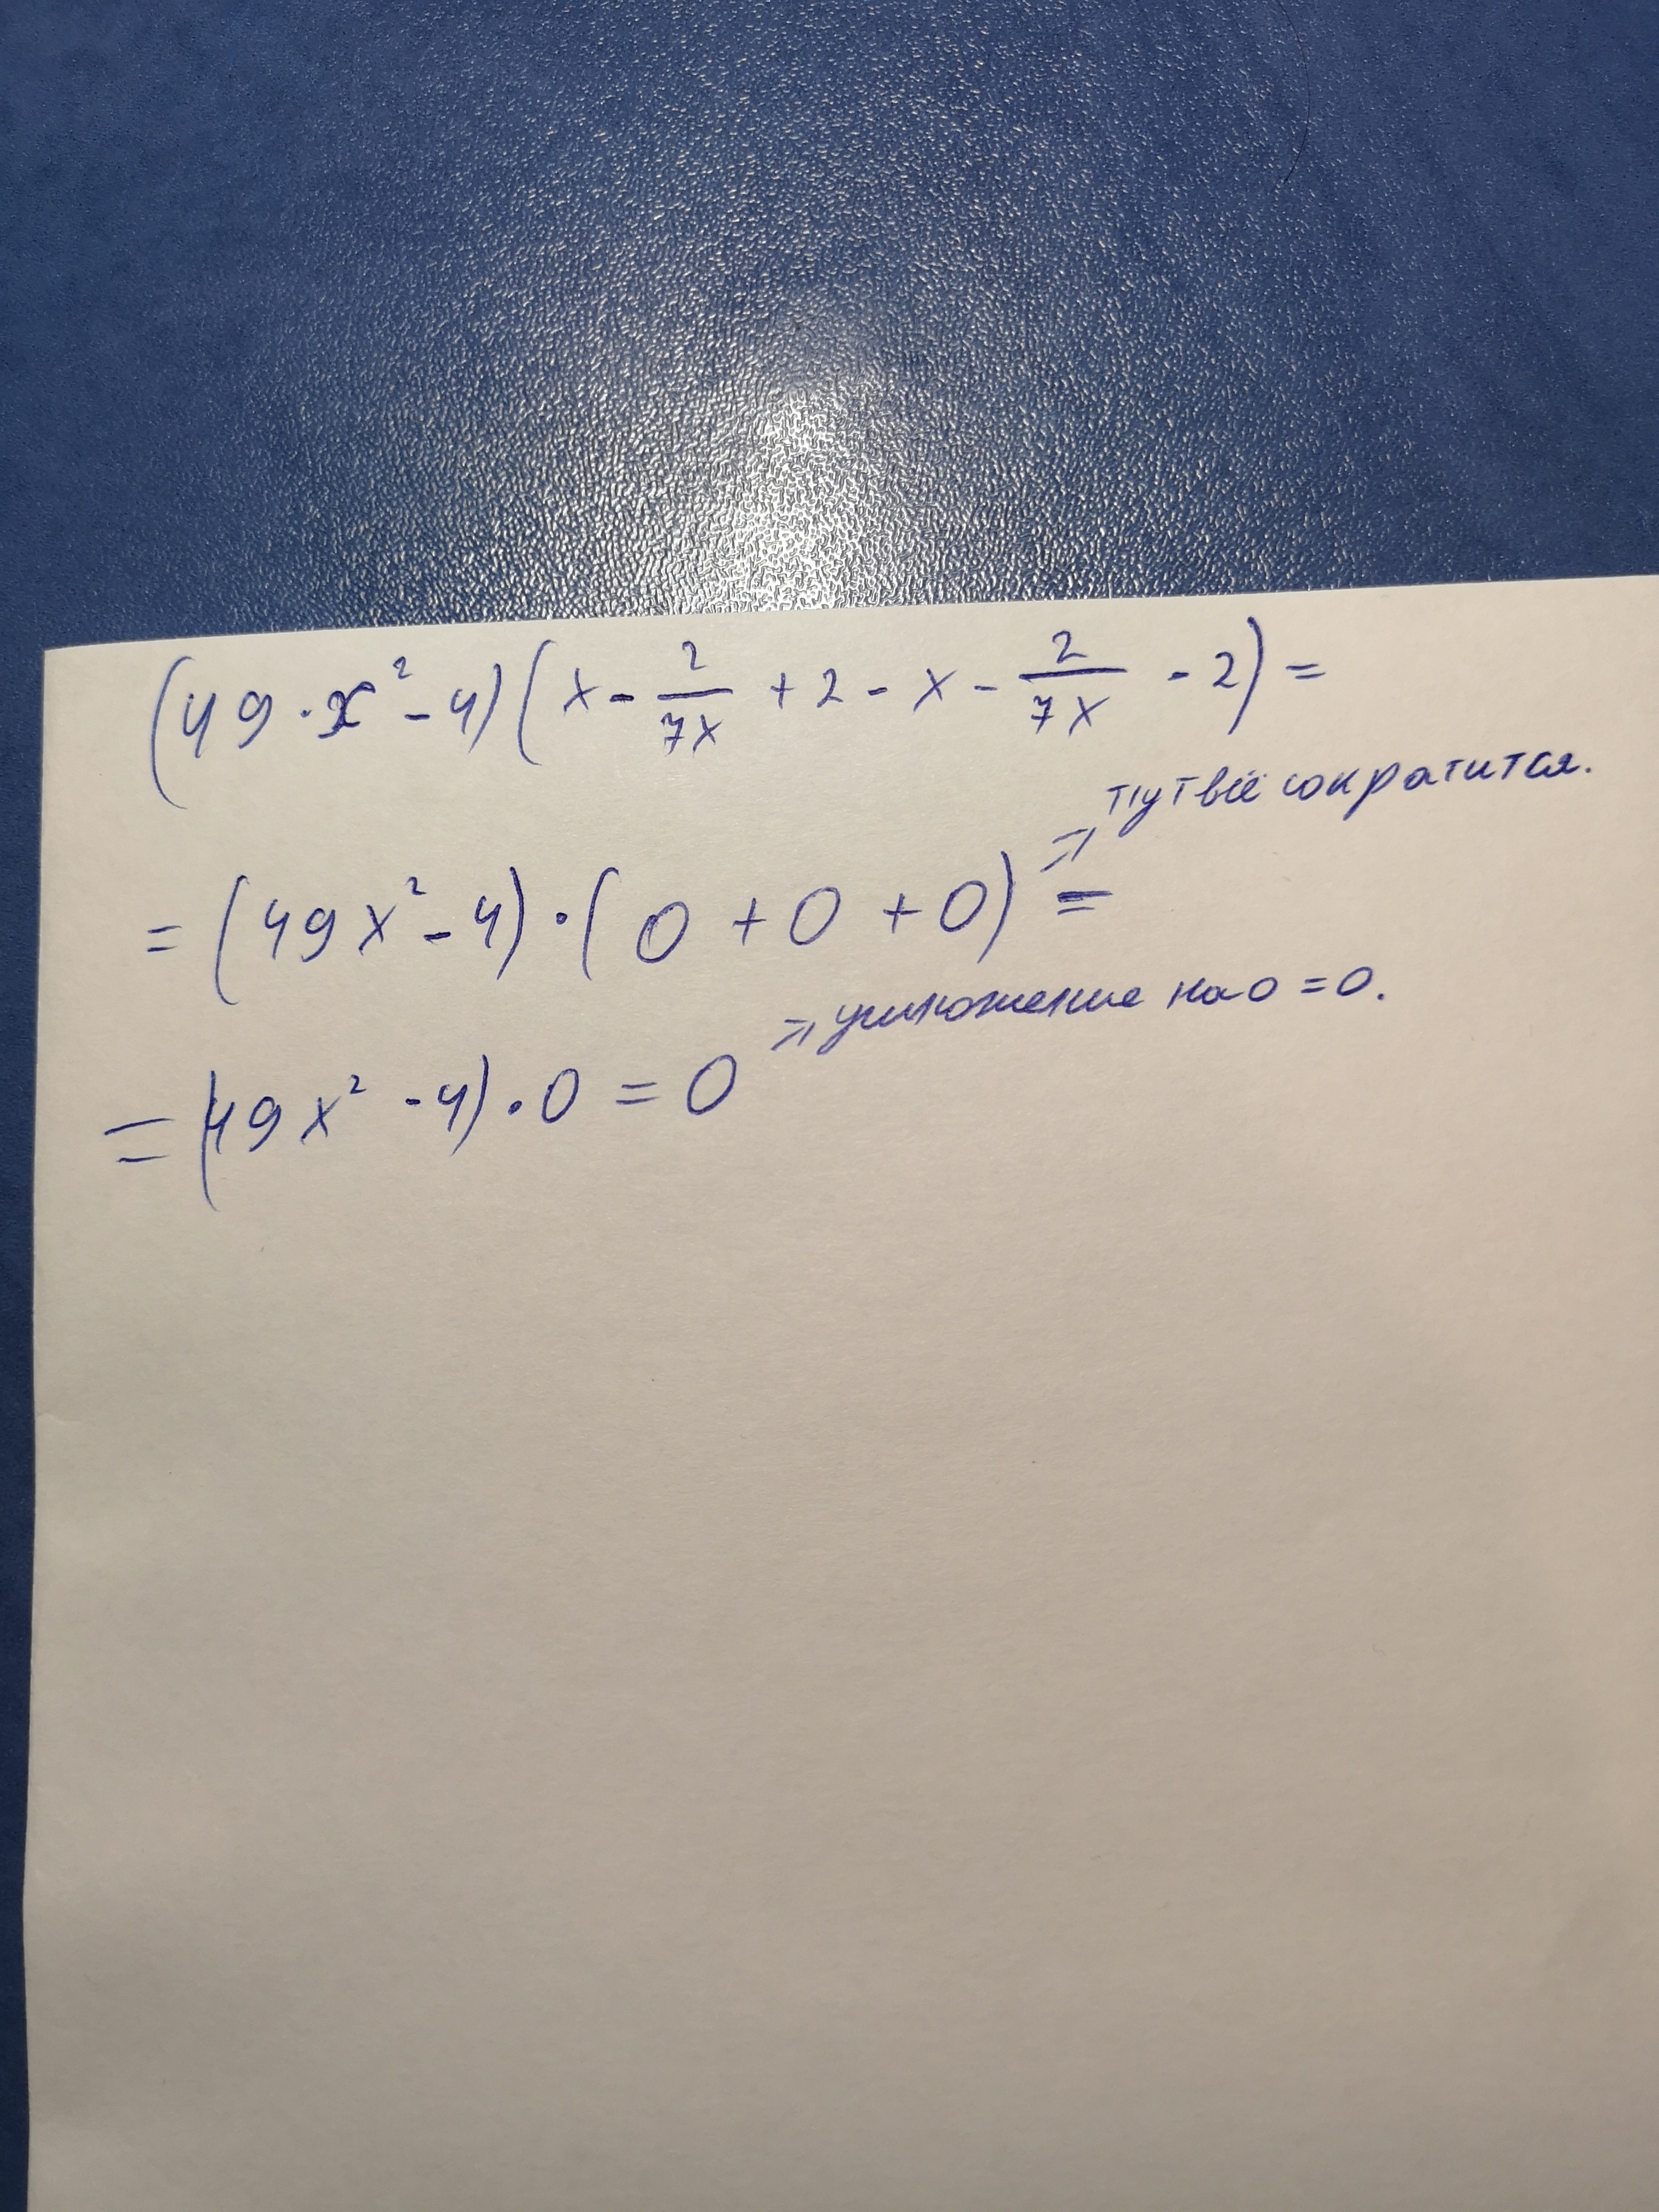 (49·x²-4)(x-2/7x+2-x-2/7x-2)=
=> тут всё сократится.
=(49x²-4)·(0+0+0)=
=> умножение на 0=0.
=(49x²-4)·0=0